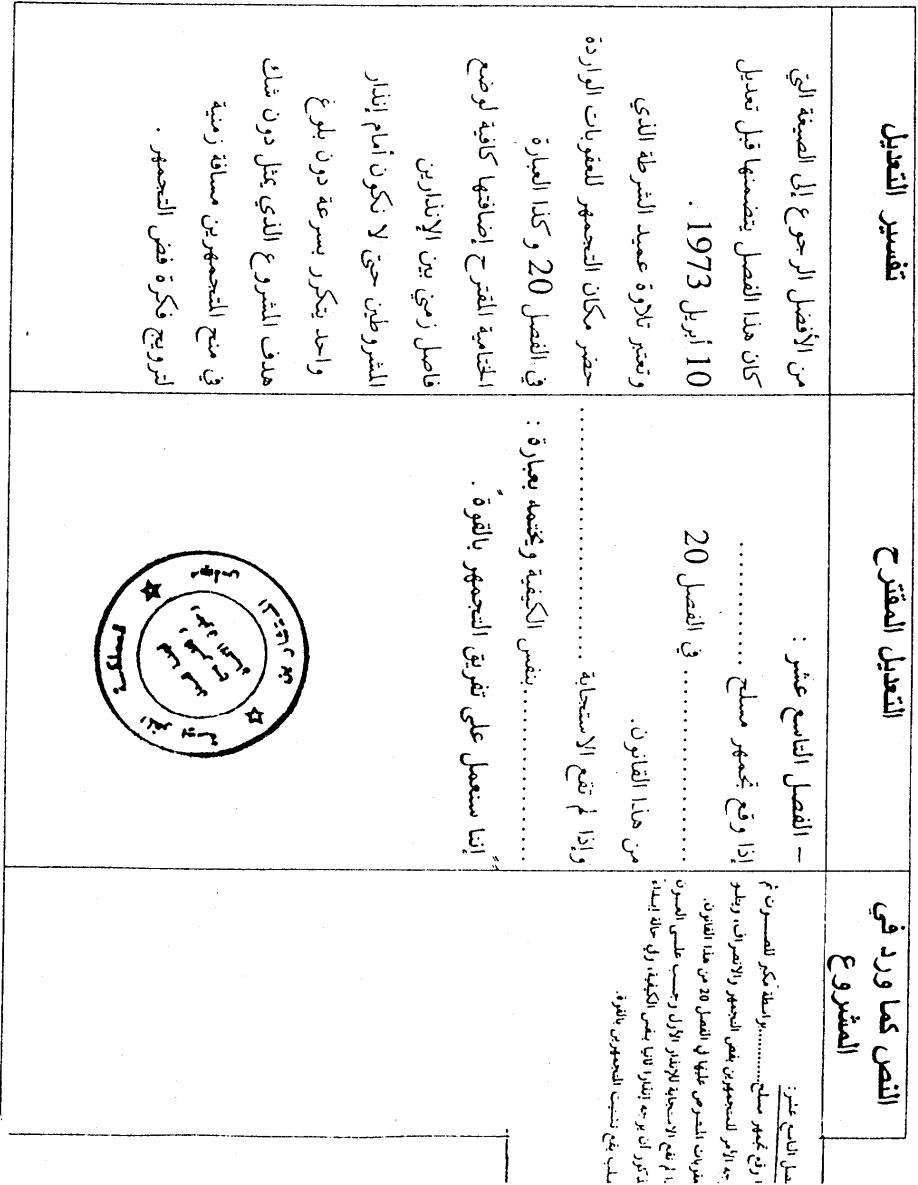 النص كما ورد في
المشروع
الفصل التاسع عشر :
إذا وقع تجمهر مسلح..........بواسطة مكبر للصوت ثم
الأمر للمتجمهرين بفض التجمهر والانصراف، ويتلو
العقوبات المنصوص عليها في الفصل 20 من هذا القانون.
لم تقع الاستجابة للإنذار الأول وجب على العون
المذكور أن يوجه إنذارا ثانيا بنفس الكيفية، وفي حالة إبداء
يقع تشتيت المتجمهرين بالقوة.
التعديل المقترح
– الفصل التاسع عشر :
إذا وقع تجمهر مسلح ..........
.................... في الفصل 20
من هذا القانون.
وإذا لم تقع الاستجابة ....................
..........بنفس الكيفية ويختمه بعبارة :
"إننا سنعمل على تفريق التجمهر بالقوة" .
تفسير التعديل
من الأفضل الرجوع إلى الصيغة التي
كان هذا الفصل يتضمنها قبل تعديل
10 أبريل 1973 .
وتعتبر تلاوة عميد الشرطة الذي
حضر مكان التجمهر للعقوبات الواردة
في الفصل 20 وكذا العبارة
الختامية المقترح إضافتها كافية لوضع
فاصل زمني بين الإنذارين
المشروطين حتى لا نكون أمام إنذار
واحد يتكرر بسرعة دون بلوغ
هدف المشروع الذي يمثل دون شك
في منح المتجمهرين مسافة زمنية
لترويج فكرة فض التجمهر .